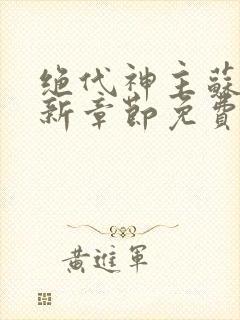 绝代神主蘇
新章節免費
黃進軍